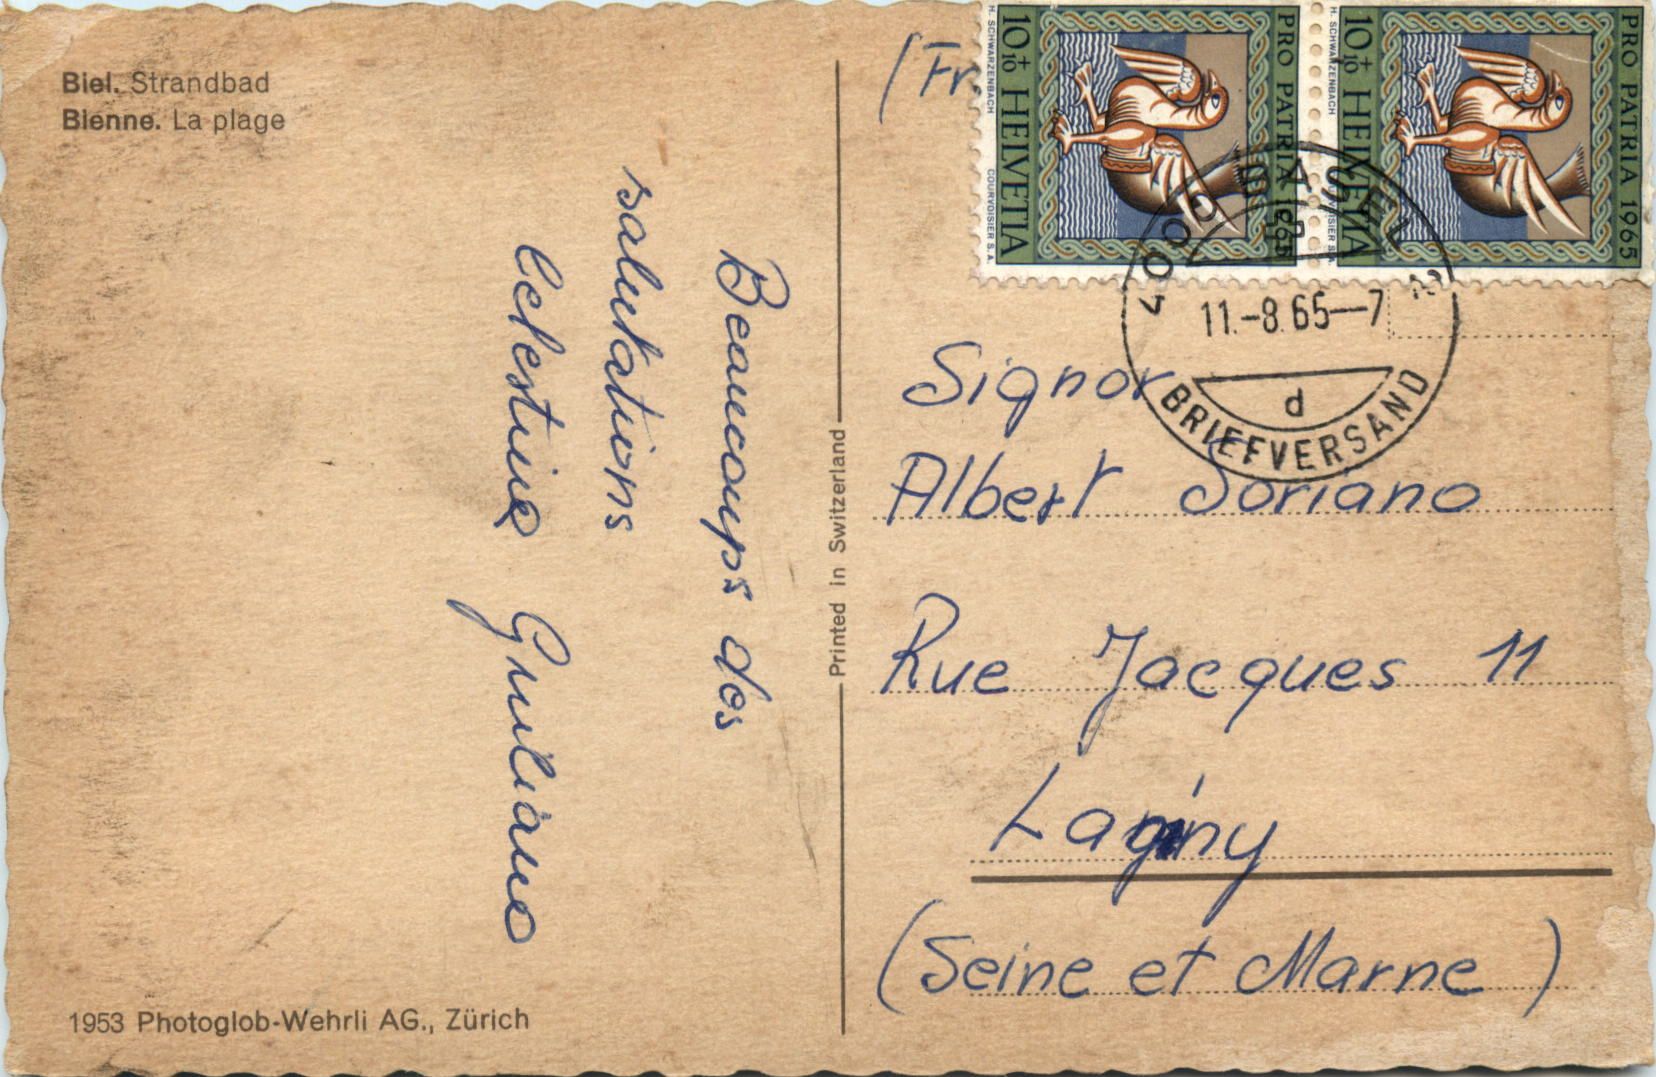 Biel. Strandbad
Bienne. La plage
Beaucoups des
salutations
Celestine Guiliano
1953 Photoglob-Wehrli AG., Zürich
Printed in Switzerland
(Fr.
PRO PATRIA 1965
10+10 HELVETIA
H. SCHWARZENBACH
COURVOISIER S.A.
PRO PATRIA 1965
10+10 HELVETIA
H. SCHWARZENBACH
COURVOISIER S.A.
4000 BASEL 2
11.-8.65—7
d
BRIEFVERSAND
Signor
Albert Soriano
Rue Jacques 11
Lagny
(Seine et Marne)